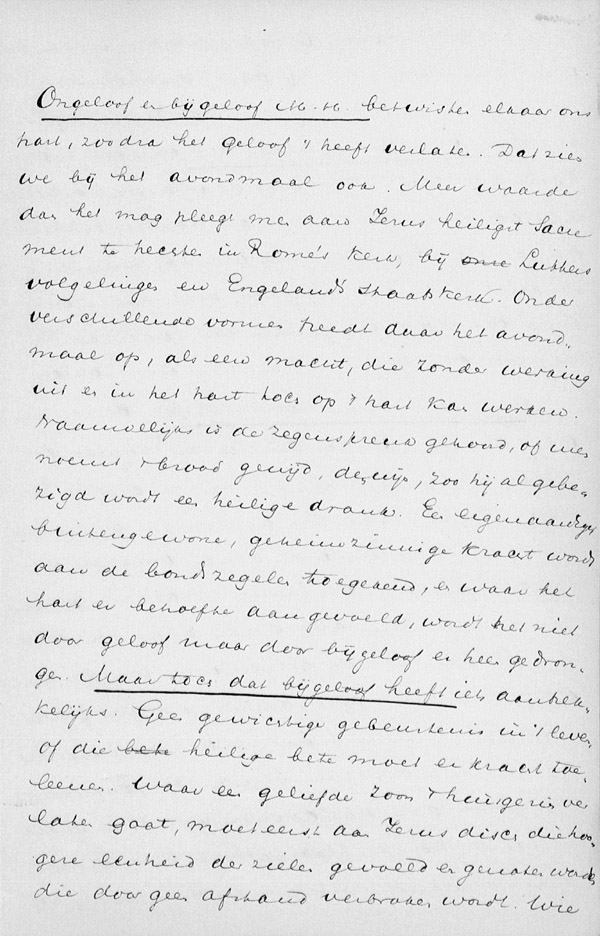 Ongeloof en bijgeloof M. H. betwisten elkaar ons
hart, zoodra het geloof 't heeft verlaten. Dat zien
we bij het avondmaal ook. Meer waarde
dan het mag pleegt men aan Jezus heiligst Sacra
ment te hechten in Rome's kerk, bij onze Luthers
volgelingen en Engelands staatskerk. Onder
verschillende vormen treedt daar het avond„
maal op, als een macht, die zonder werking
uit en in het hart toch op 't hart kan werken.
Naauwelijks is de zegenspreuk gehoord, of men
noemt 't brood gewijd, den wijn, zoo hij al gebe„
zigd wordt een heilige drank. Een eigenaardige
buitengewone, geheimzinnige kracht wordt
aan de bondszegelen toegekend, en waar het
hart er behoefte aan gevoeld, wordt het niet
door geloof maar door bijgeloof er heen gedron„
gen. Maar toch dat bijgeloof heeft iets aantrek„
kelijks. Geen gewichtige gebeurtenis in 't leven
of die bete heilige bete moet er kracht toe„
leenen. Waar een geliefde zoon 't huisgezin ver
laten gaat, moet eerst aan Jezus disch die hoo„
gere eenheid der zielen gevoeld en genoten worden
die door geen afstand verbroken wordt. Wie